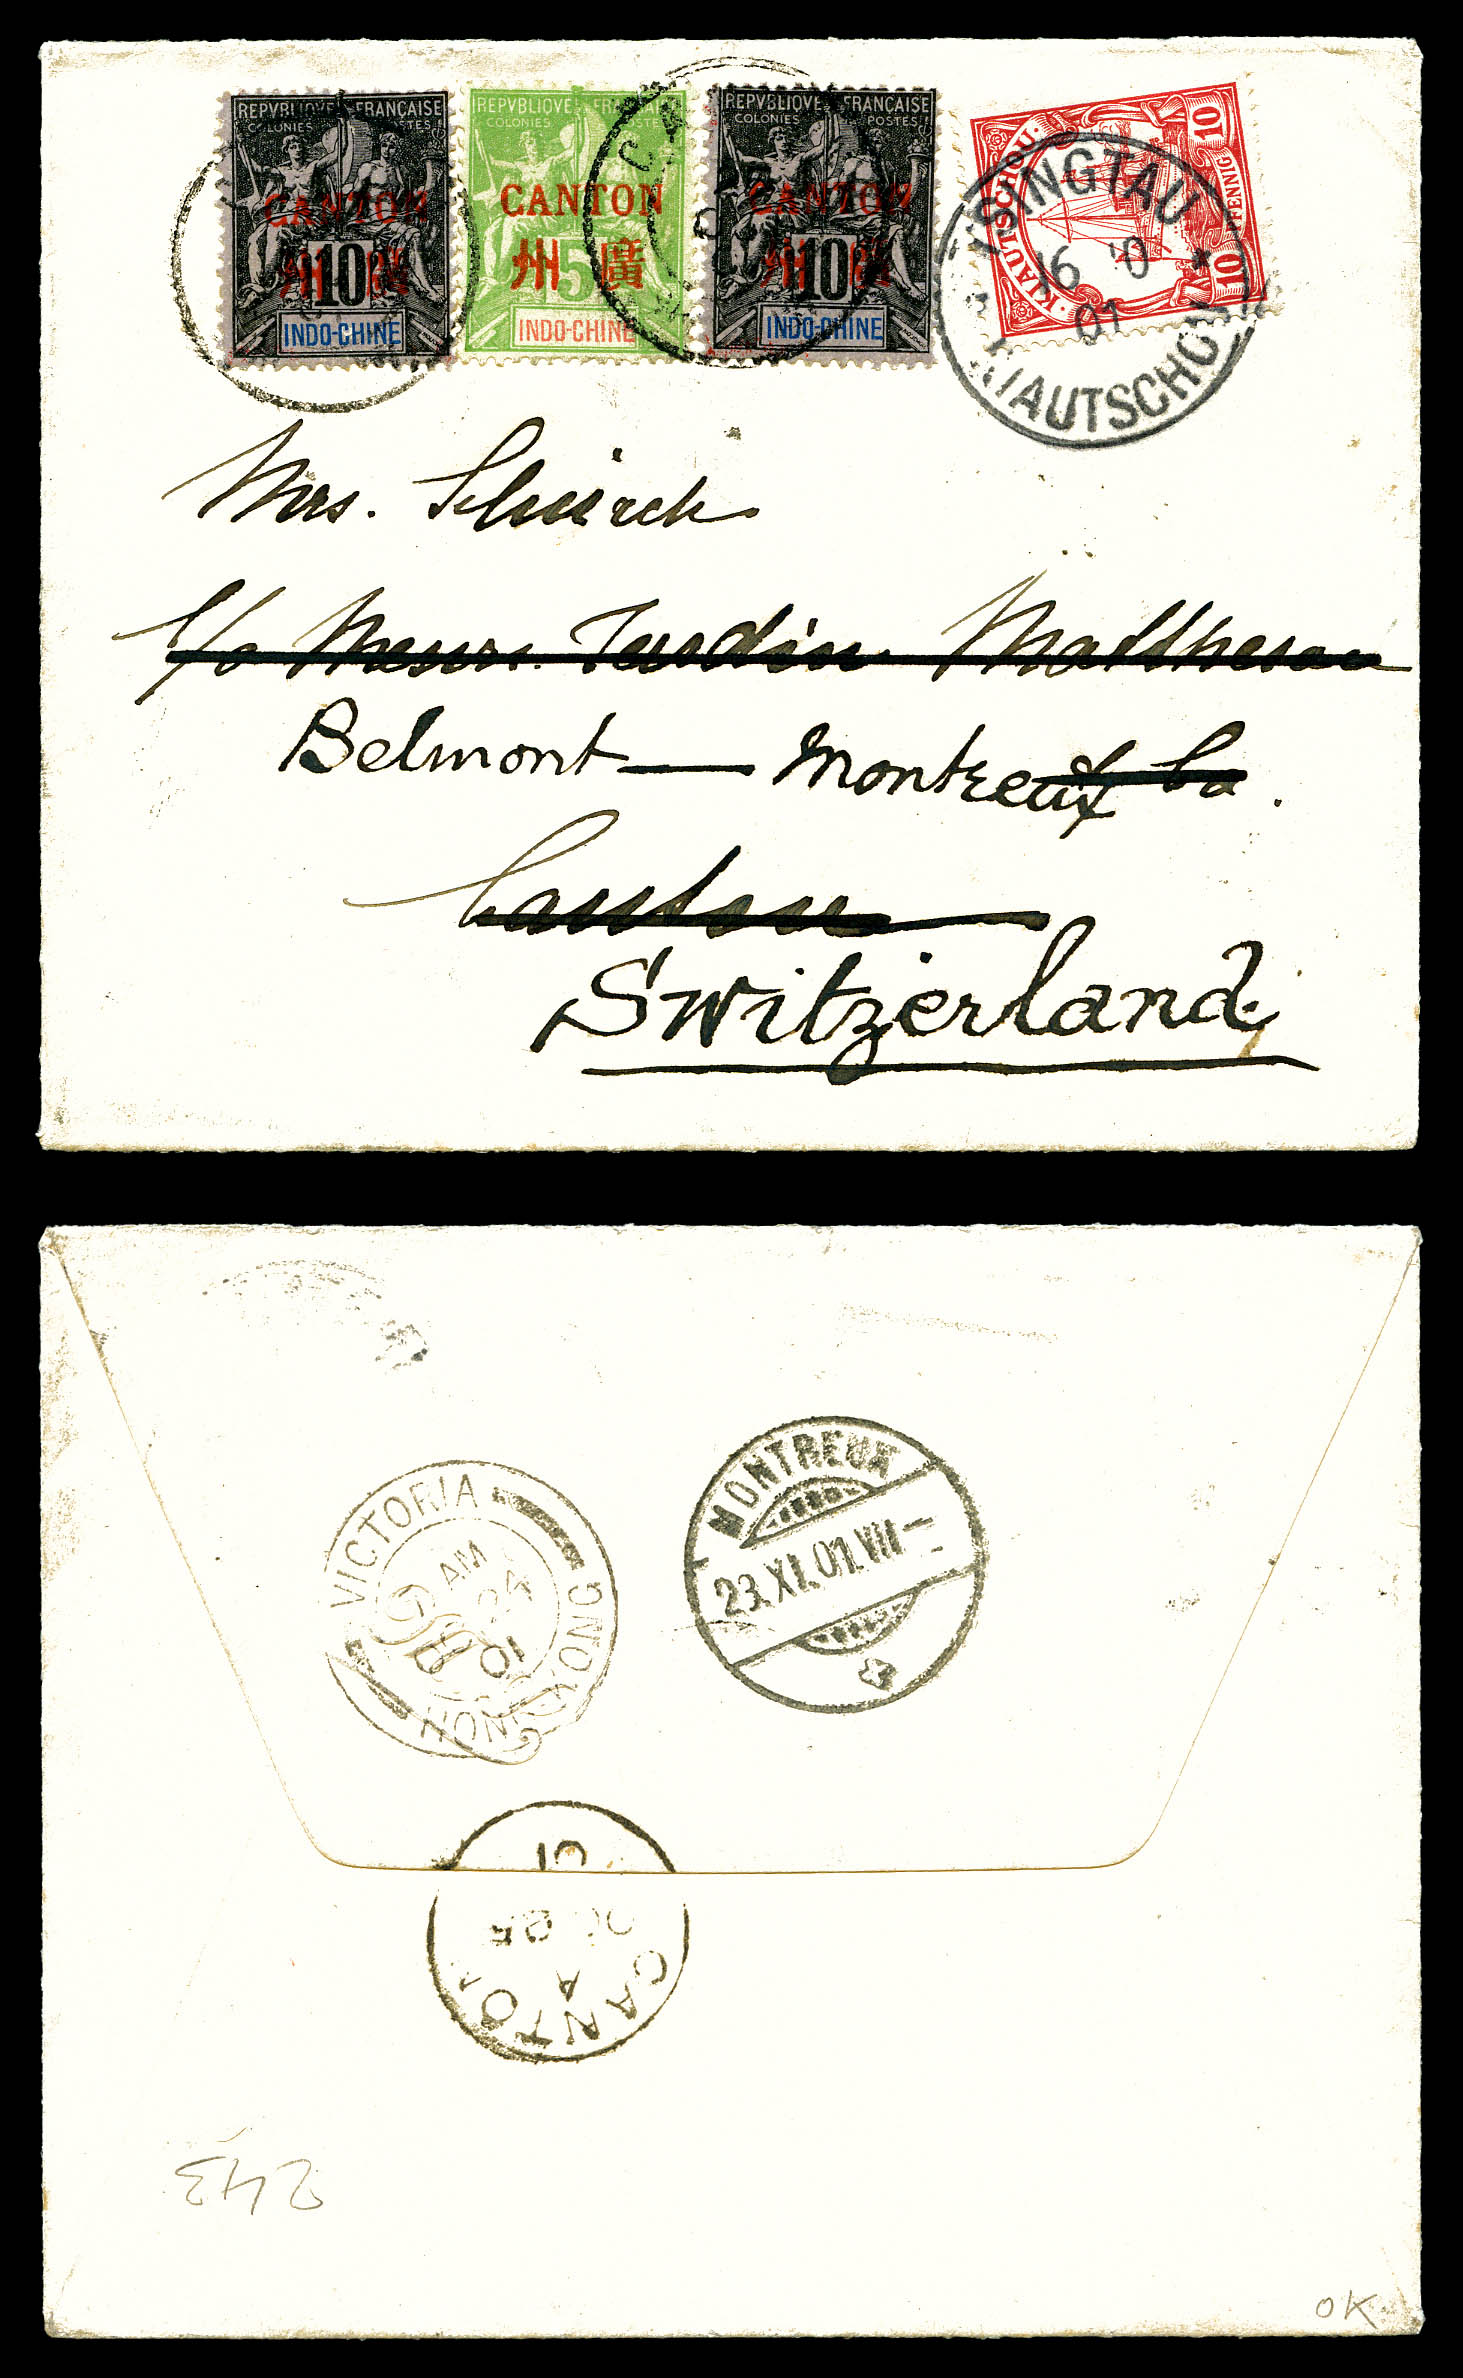 REPVBLIQVE FRANÇAISE
COLONIES POSTES
CANTON
10
INDO-CHINE
REPVBLIQVE FRANÇAISE
COLONIES POSTES
CANTON
州 5 廣
INDO-CHINE
REPVBLIQVE FRANÇAISE
COLONIES POSTES
CANTON
10
INDO-CHINE
KIAUTSCHOU
10 PFENNIG 10
TSINGTAU
16 10
01
KIAUTSCHOU
Mrs. Schuirch
c/o Messrs. Jardin Mattheson
Belmont — Montreux Co.
Canton
Switzerland
MONTREUX
23.XI.01.VII
VICTORIA
AM
24
01
HONG KONG
01
25
A
CANTON
243
OK